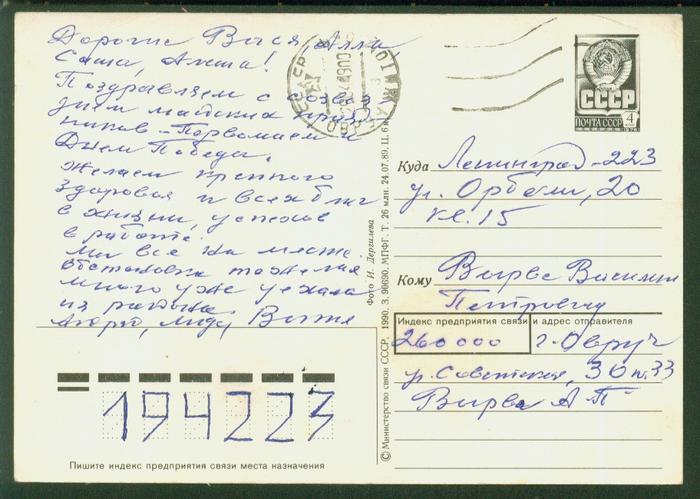 Дорогие Вася, Алла
Саша, Анша!
Поздравляем с созвез
дием майских празд
ников - Первомаем и
Днем Победы.
Желаем крепкого
здоровья и всех благ
в жизни, успехов
в работе.
Мы все на месте.
Обстановка тяжелая
много уже уехало
из района.
Андрей, Лида, Витя
СССР
ПОЧТА СССР
4
Куда Ленинград-223
ул. Орбели, 20
кв. 15
Кому Вырве Василию
Петровичу
Индекс предприятия связи и адрес отправителя
260000 г. Овруч
ул. Советская, 30 п. 33
Вырве А П
194223
Пишите индекс предприятия связи места назначения
Фото И. Дергилева
© Министерство связи СССР, 1990. З. 90690. МПФГ. Т. 26 млн. 24.07.89. Ц. 6 к.